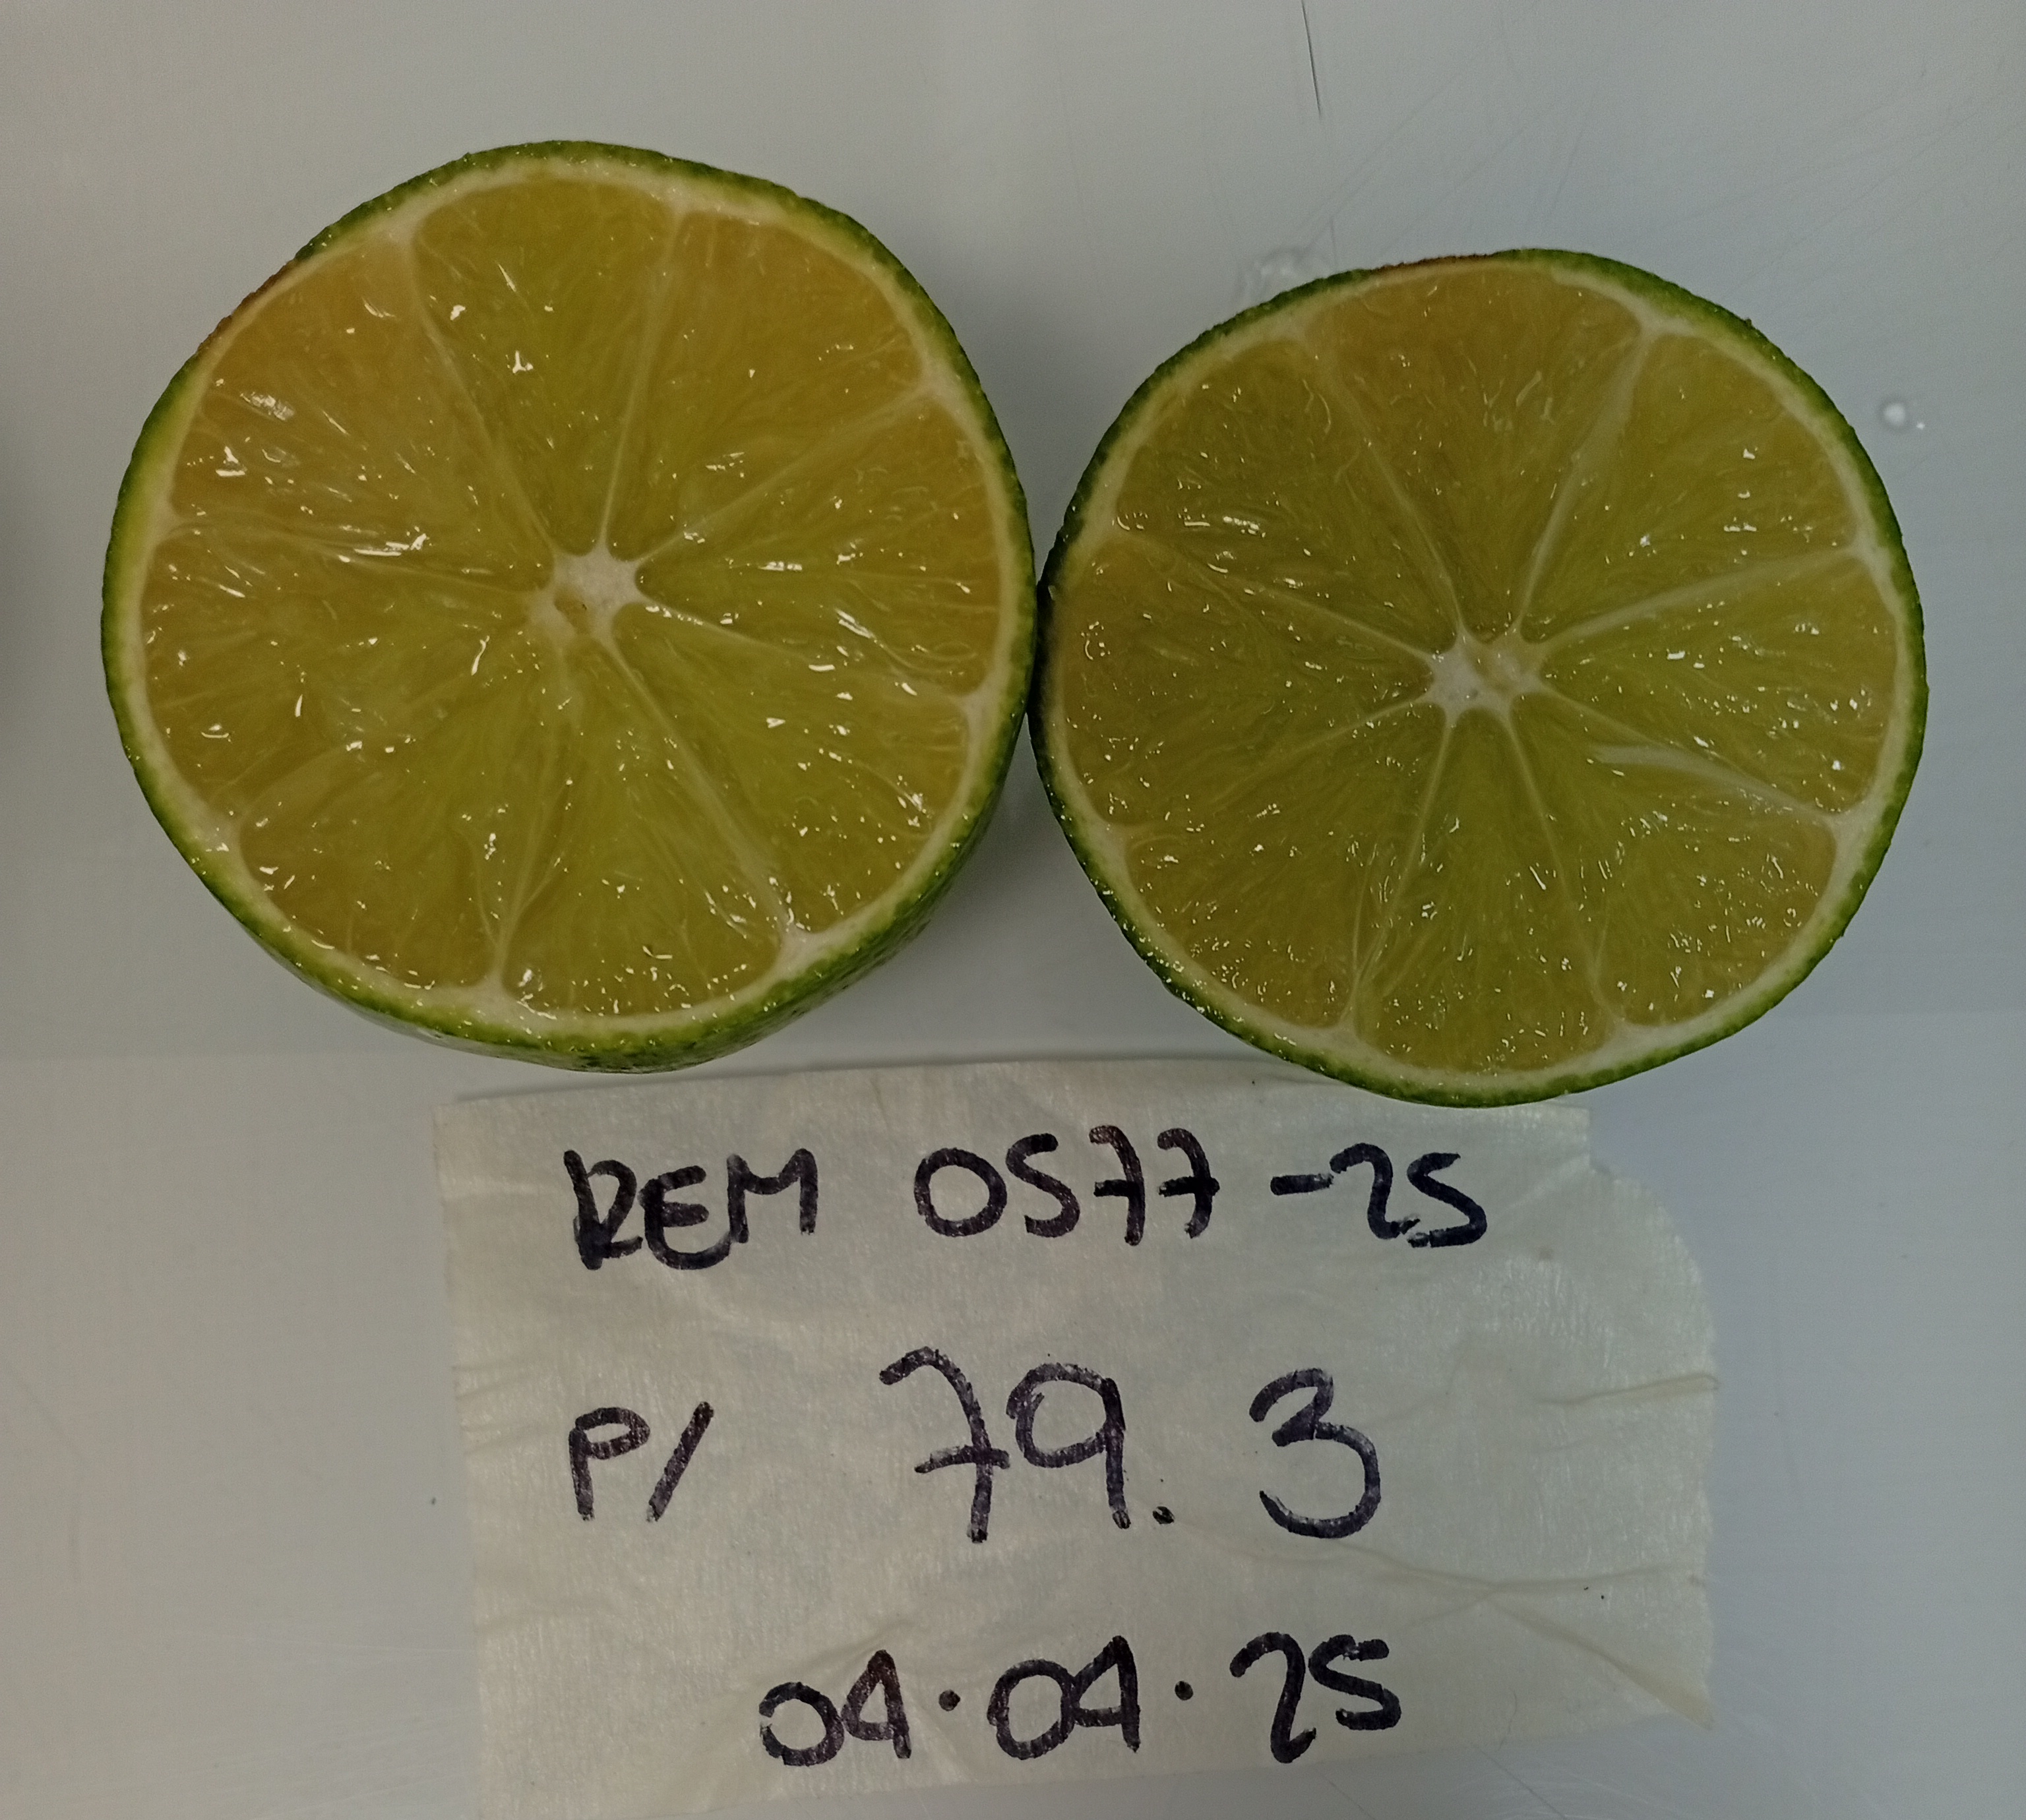 REM 0577-25
P/ 79.3
04.04.25